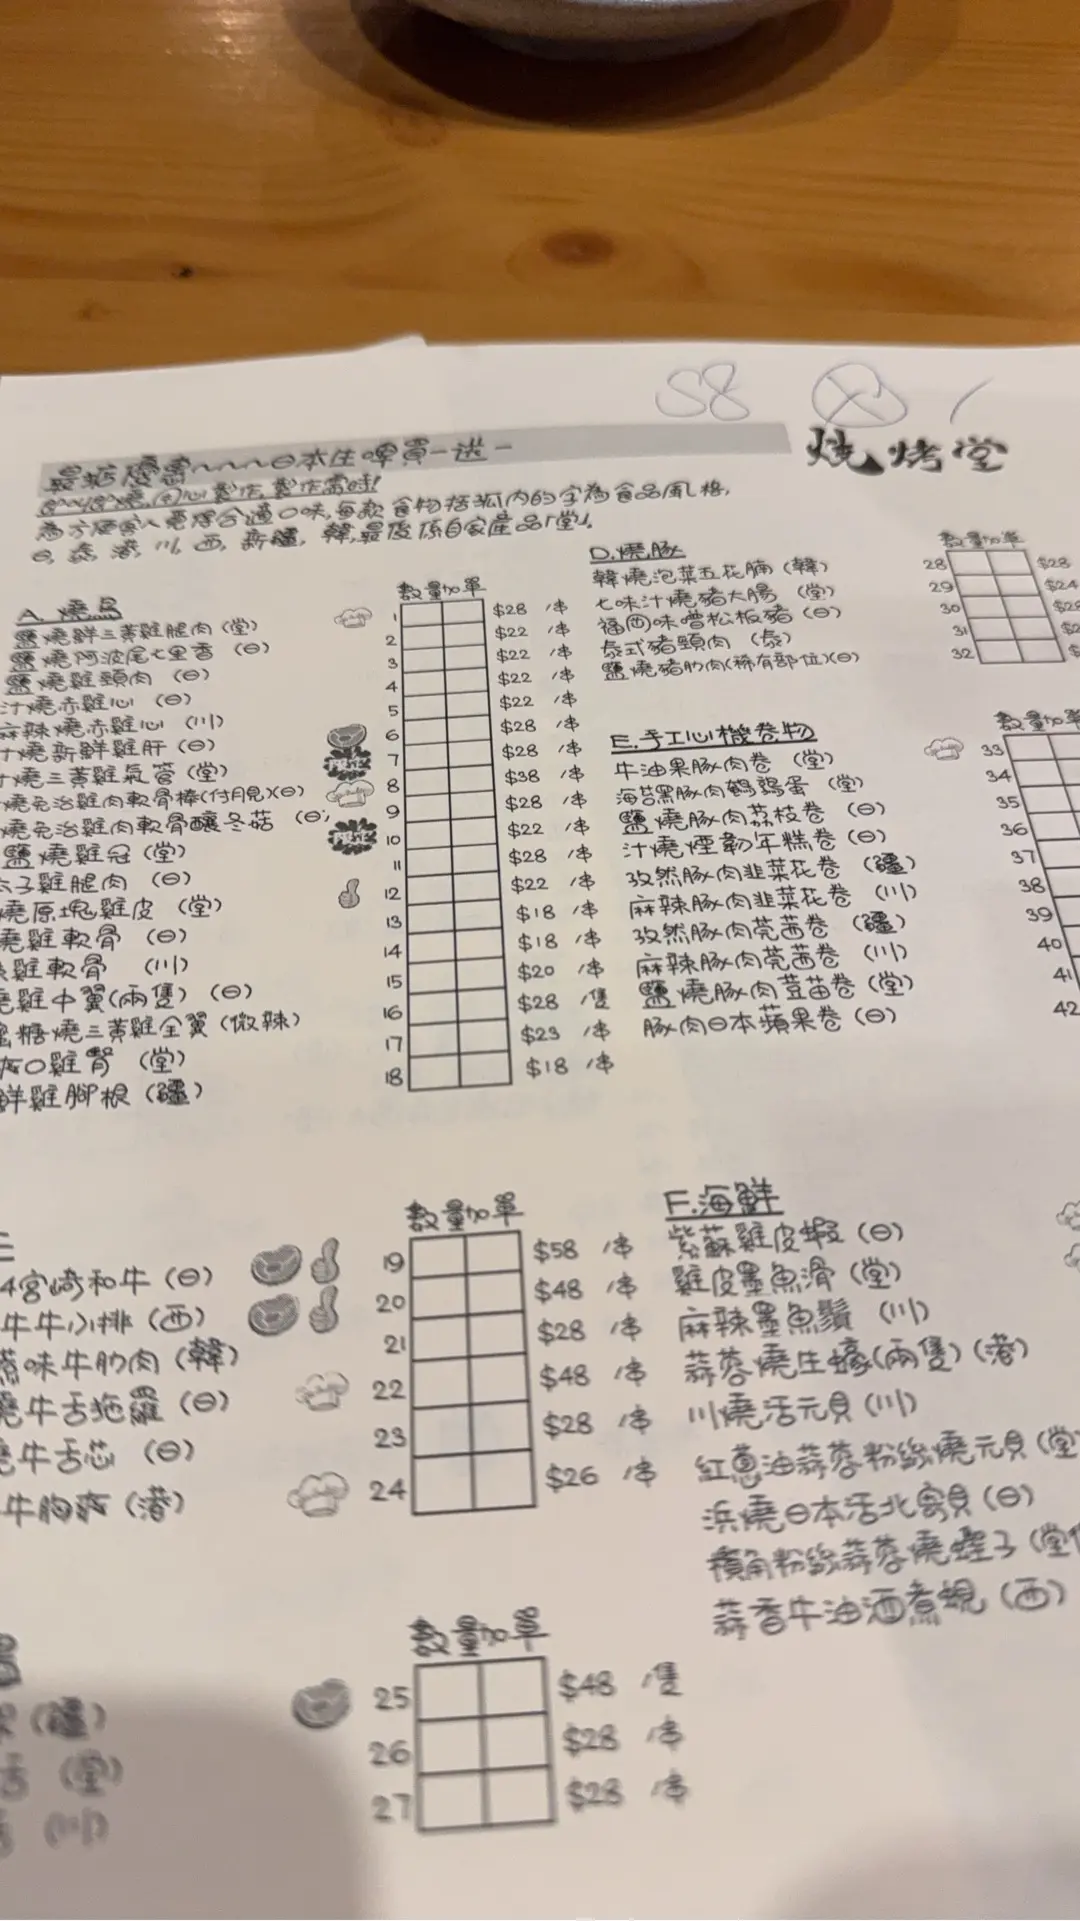 S8
燒烤堂
最新優惠~~~~日本生啤買一送一
為方便客人選擇合適口味,每款食物括弧內的字為食品風格,
日,泰,港,川,西,新疆,韓,最後係自家產品「堂」。
A.燒鳥
數量加單
鹽燒鮮三黃雞腿肉(堂) 1 $28 /串
鹽燒阿波尾七里香(日) 2 $22 /串
鹽燒雞頸肉(日) 3 $22 /串
汁燒赤雞心(日) 4 $22 /串
麻辣燒赤雞心(川) 5 $22 /串
汁燒新鮮雞肝(日) 6 $28 /串
燒三黃雞氣管(堂) 7 $28 /串
燒免治雞肉軟骨棒(付月見)(日) 8 $38 /串
燒免治雞肉軟骨釀冬菇(日) 9 $28 /串
鹽燒雞冠(堂) 10 $22 /串
太子雞腿肉(日) 11 $28 /串
燒原塊雞皮(堂) 12 $22 /串
燒雞軟骨(日) 13 $18 /串
雞軟骨(川) 14 $18 /串
燒雞中翼(兩隻)(日) 15 $20 /串
糖燒三黃雞全翼(微辣) 16 $28 /隻
雞腎(堂) 17 $23 /串
鮮雞腳根(疆) 18 $18 /串
數量加單
4宮崎和牛(日) 19 $58 /串
牛牛小排(西) 20 $48 /串
味牛肋肉(韓) 21 $28 /串
燒牛舌拖羅(日) 22 $48 /串
牛舌芯(日) 23 $28 /串
牛胸爽(港) 24 $26 /串
數量加單
(疆) 25 $48 /隻
舌(堂) 26 $28 /串
(川) 27 $28 /串
D.燒豚
數量加單
韓燒泡菜五花腩(韓) 28 $28
七味汁燒豬大腸(堂) 29 $24
福岡味噌松板豬(日) 30
泰式豬頸肉(泰) 31
鹽燒豬肋肉(稀有部位)(日) 32
E.手工心機卷物
數量加單
牛油果豚肉卷(堂) 33
海苔黑豚肉鵪鶉蛋(堂) 34
鹽燒豚肉荔枝卷(日) 35
汁燒煙韌年糕卷(日) 36
孜然豚肉韭菜花卷(疆) 37
麻辣豚肉韭菜花卷(川) 38
孜然豚肉芫茜卷(疆) 39
麻辣豚肉芫茜卷(川) 40
鹽燒豚肉荳苗卷(堂) 41
豚肉日本蘋果卷(日) 42
F.海鮮
紫蘇雞皮蝦(日)
雞皮墨魚滑(堂)
麻辣墨魚鬚(川)
蒜蓉燒生蠔(兩隻)(港)
川燒活元貝(川)
紅蔥油蒜蓉粉絲燒元貝(堂)
浜燒日本活北寄貝(日)
粉絲蒜蓉燒蟶子(堂
蒜香牛油酒煮蜆(西)